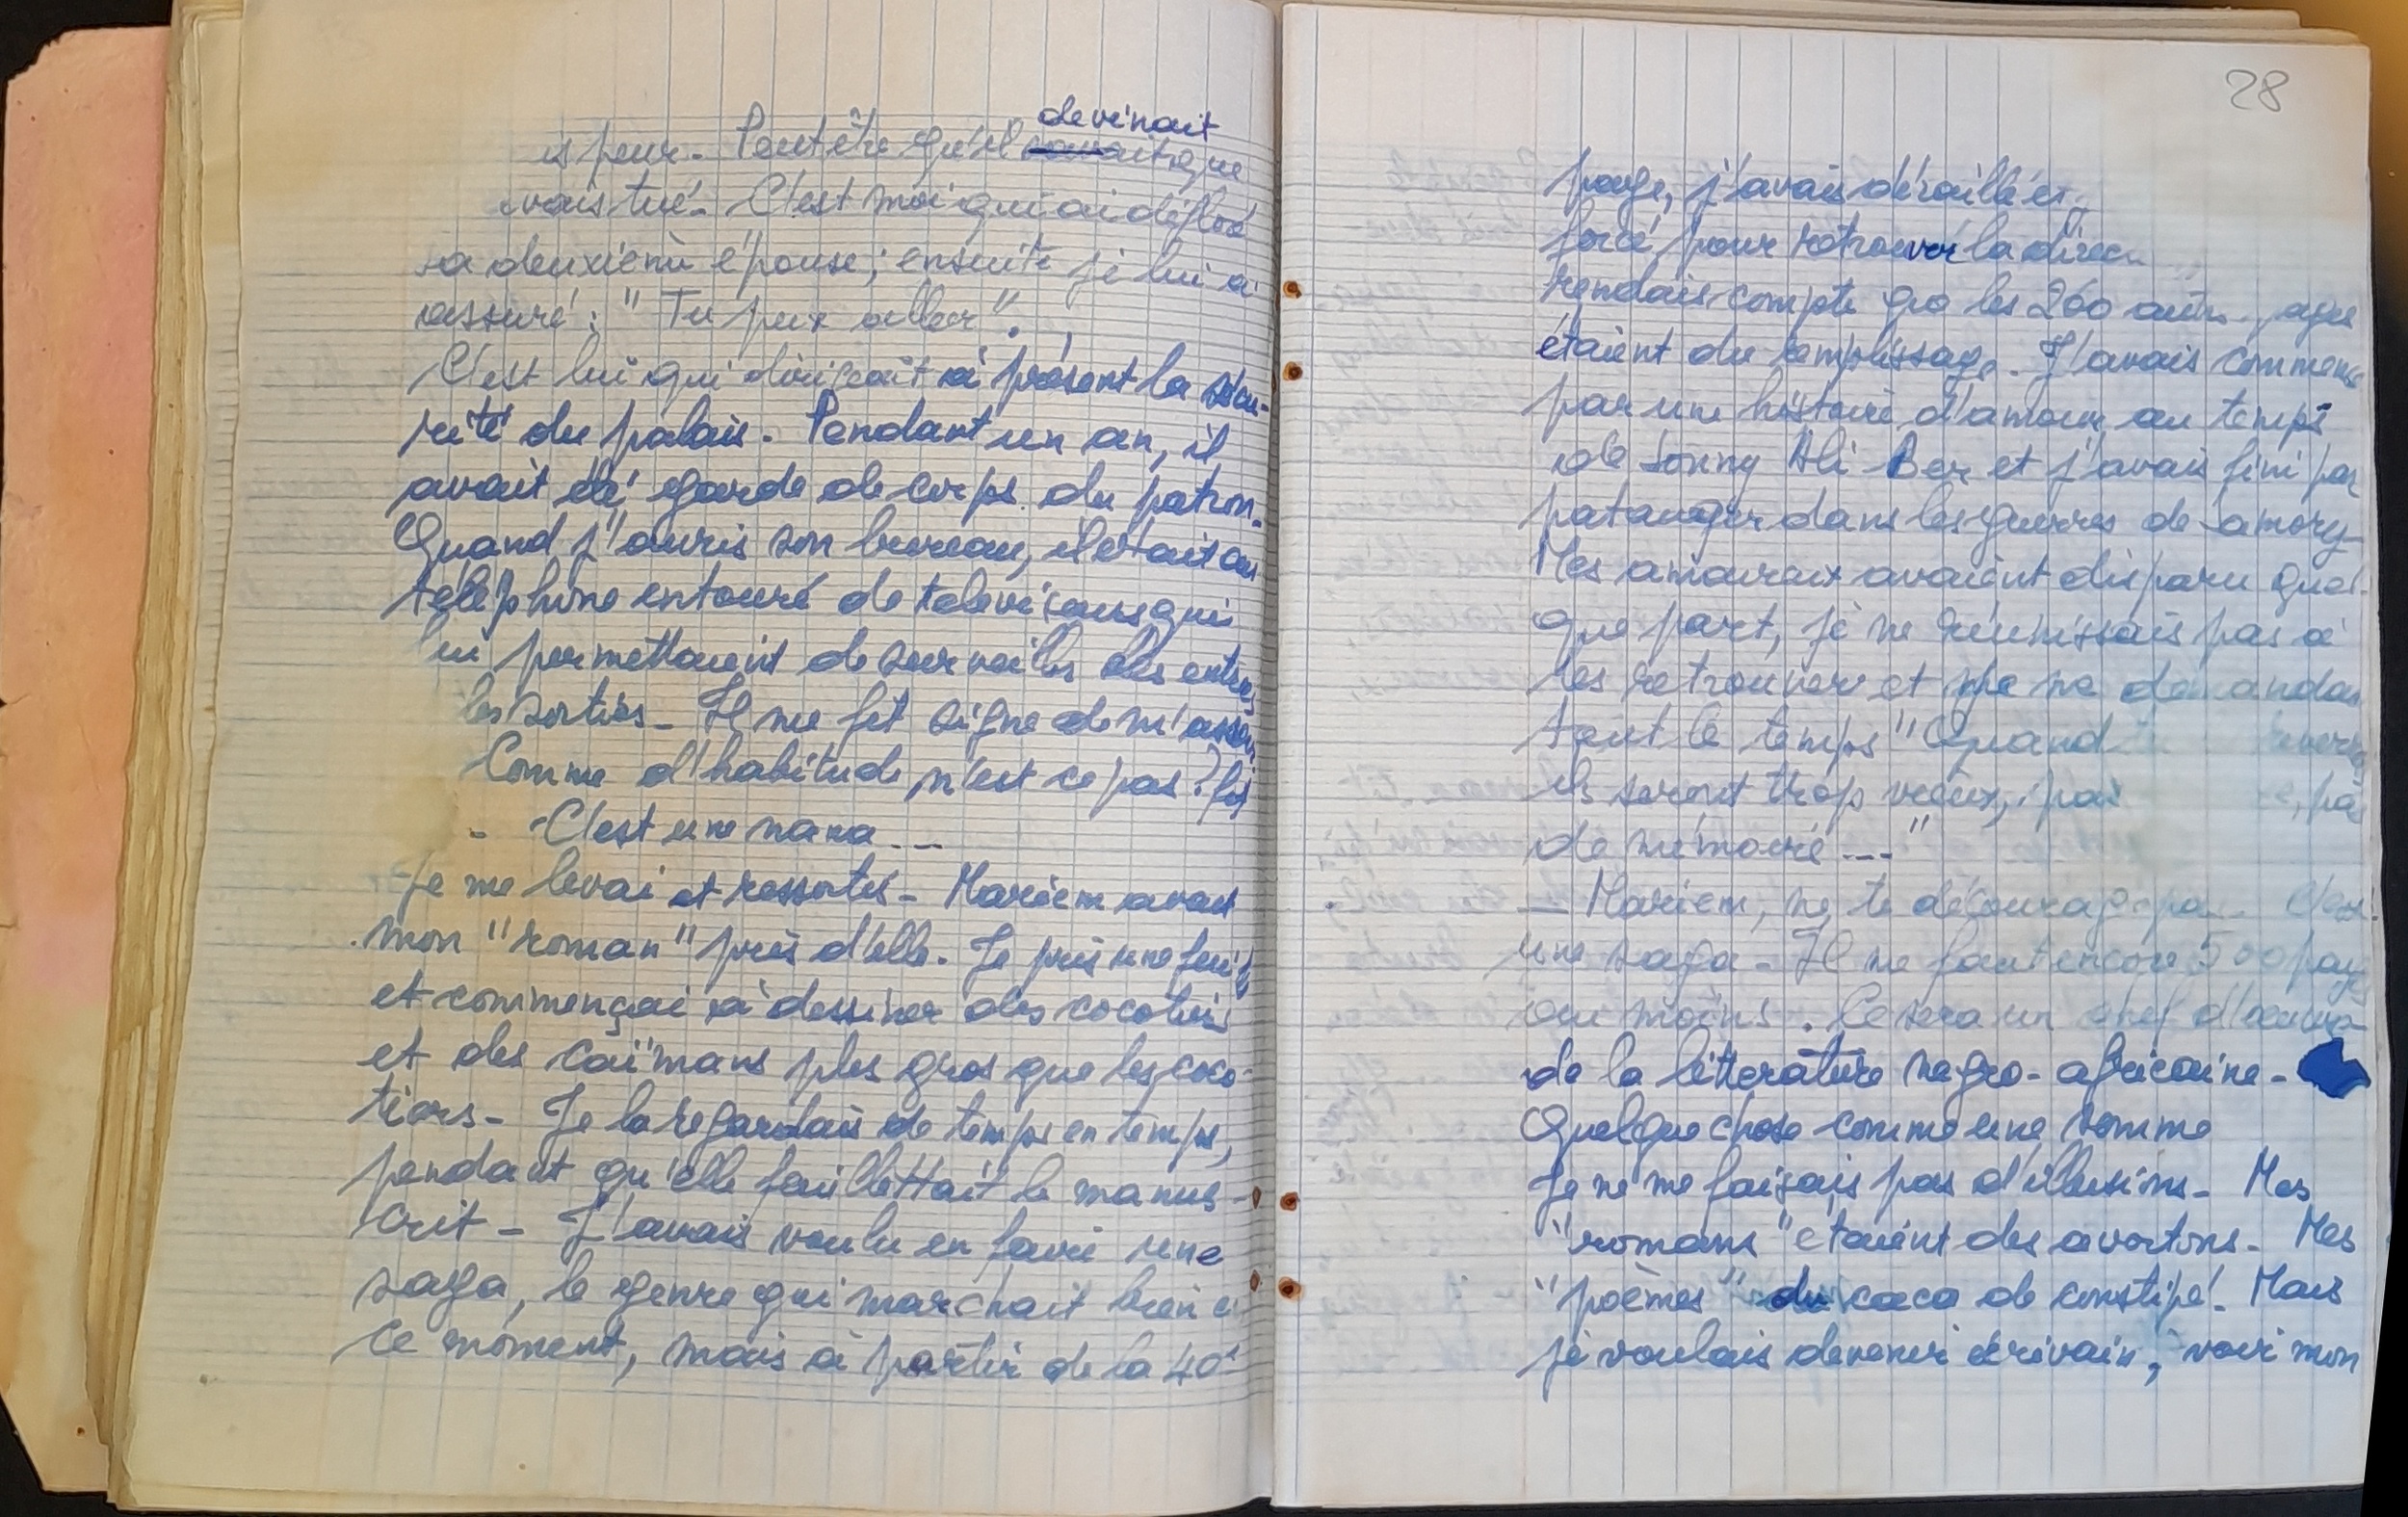 is peur. Peut être qu'il devinait que
vais tué. C'est moi qui ai défloré
sa deuxième épouse ; ensuite je lui ai
assuré : "Tu peux aller".
C'est lui qui dirigeait à présent la sécu-
rité du palais. Pendant un an, il
avait été garde de corps du patron.
Quand j'ouvris son bureau, il était au
téléphone entouré de televiseurs qui
lui permettaient de surveiller les entrées
les sorties. Il me fit signe de m'asseoir
Comme d'habitude, n'est ce pas ? fis
- C'est une nana ...
Je me levai et ressortis. Mariem avait
mon "roman" près d'elle. Je pris une feuille
et commençai à dessiner des cocotiers
et des caïmans plus gros que les coco-
tiers. Je la regardais de temps en temps,
pendant qu'elle feuillettait le manus-
crit. J'avais voulu en faire une
saga, le genre qui marchait bien en
ce moment, mais à partir de la 40e
28
page, j'avais déraillé et
forcé pour retrouver la direc
rendais compte que les 260 autres pages
étaient du remplissage. J'avais commencé
par une histoire d'amour au temps
de Sonny Ali Ber et j'avais fini par
patauger dans les guerres de Samory
Mes amoureux avaient disparu quel-
que part, je ne réunissais pas à
les retrouver et me demandais
tout le temps "Quand
ils seront trop vieux, pas , pas
de mémoire ---"
— Mariem, ne te décourage pas. C'est
une saga. Il me faut encore 500 pages
au moins. Ce sera un chef d'oeuvre
de la littérature negro-africaine -
Quelque chose comme une somme
Je ne me faisais pas d'illusions. Mes
"romans" étaient des avortons. Mes
"poèmes" du caca de constipé. Mais
je voulais devenir écrivain, voir mon